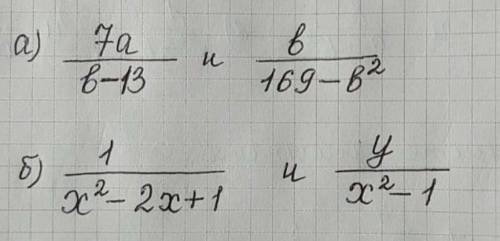 а) 7a/(b-13) и b/(169-b²)
б) 1/(x²-2x+1) и y/(x²-1)